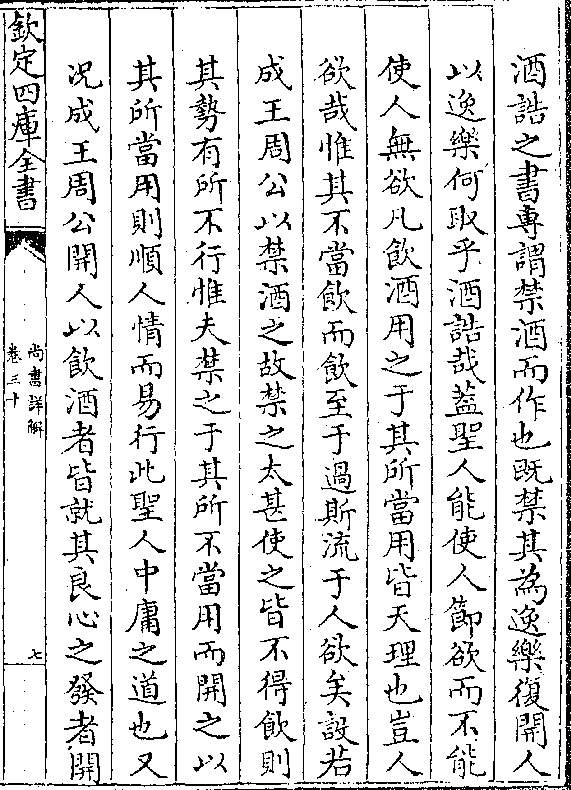 酒誥之書專謂禁酒而作也既禁其為逸樂復開人
以逸樂何取乎酒誥哉蓋聖人能使人節欲而不能
使人無欲凡飲酒用之于其所當用皆天理也豈人
欲哉惟其不當飲而飲至于過斯流于人欲矣設若
成王周公以禁酒之故禁之太甚使之皆不得飲則
其勢有所不行惟夫禁之于其所不當用而開之以
其所當用則順人情而易行此聖人中庸之道也又
況成王周公開人以飲酒者皆就其良心之發者開
欽定四庫全書
尚書詳解
卷三十
七